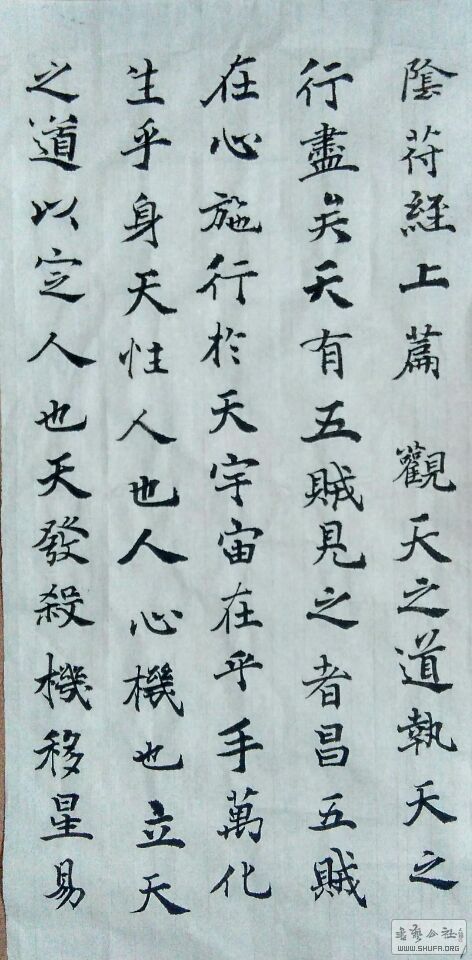 陰符經上篇 觀天之道執天之
行盡矣天有五賊見之者昌五賊
在心施行於天宇宙在乎手萬化
生乎身天性人也人心機也立天
之道以定人也天發殺機移星易
書藝公社
WWW.SHUFA.ORG